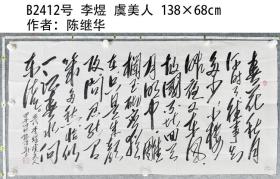 B2412号 李煜 虞美人 138×68cm
作者: 陈继华
春花秋月
何时了往事知
多少小楼
昨夜又东风
故国不堪回首
月明中雕
栏玉砌应犹
在只是朱颜
改问君能有几
多愁恰似
一江春水向
东流